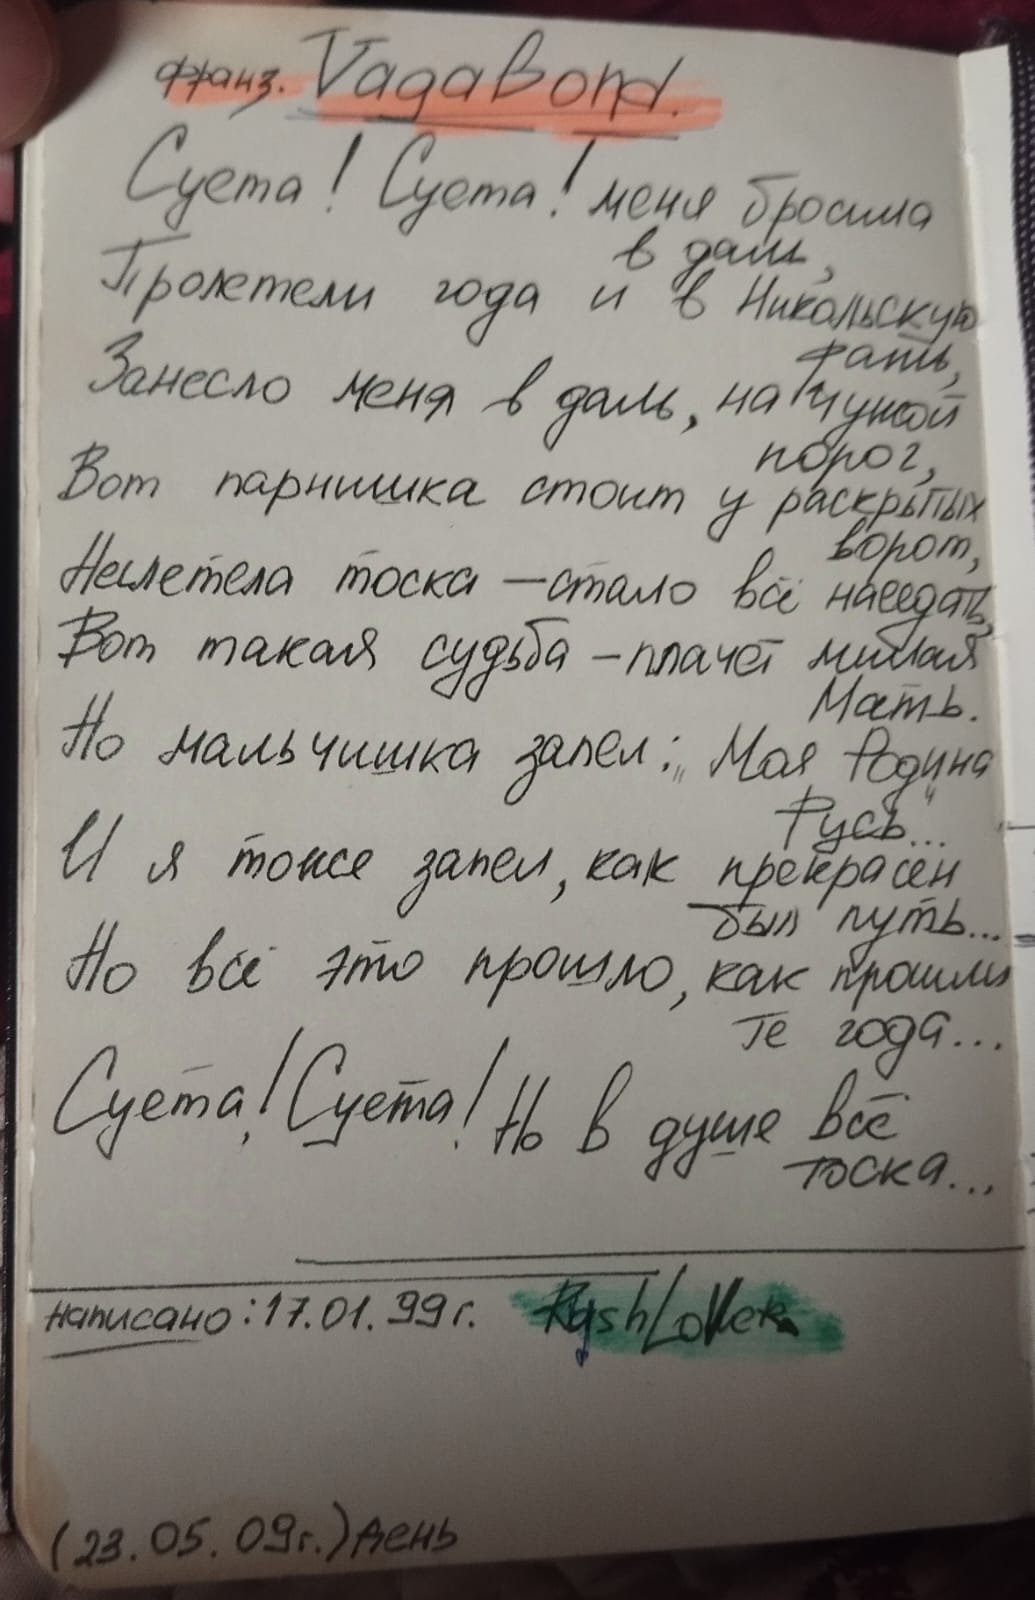 франз. VagaBond.
Суета! Суета! меня бросила
в даль,
Пролетели года и в Никольскую
рать,
Занесло меня в даль, на чужой
порог,
Вот парнишка стоит у раскрытых
ворот,
Налетела тоска – стало всё наседать,
Вот такая судьба – плачет милая
Мать.
Но мальчишка запел: „Моя Родина
Русь..."
И я тоже запел, как прекрасен
был путь...
Но всё это прошло, как прошли
те года...
Суета! Суета! Но в душе всё
тоска...
написано: 17.01.99г.
(23.05.09г.) день